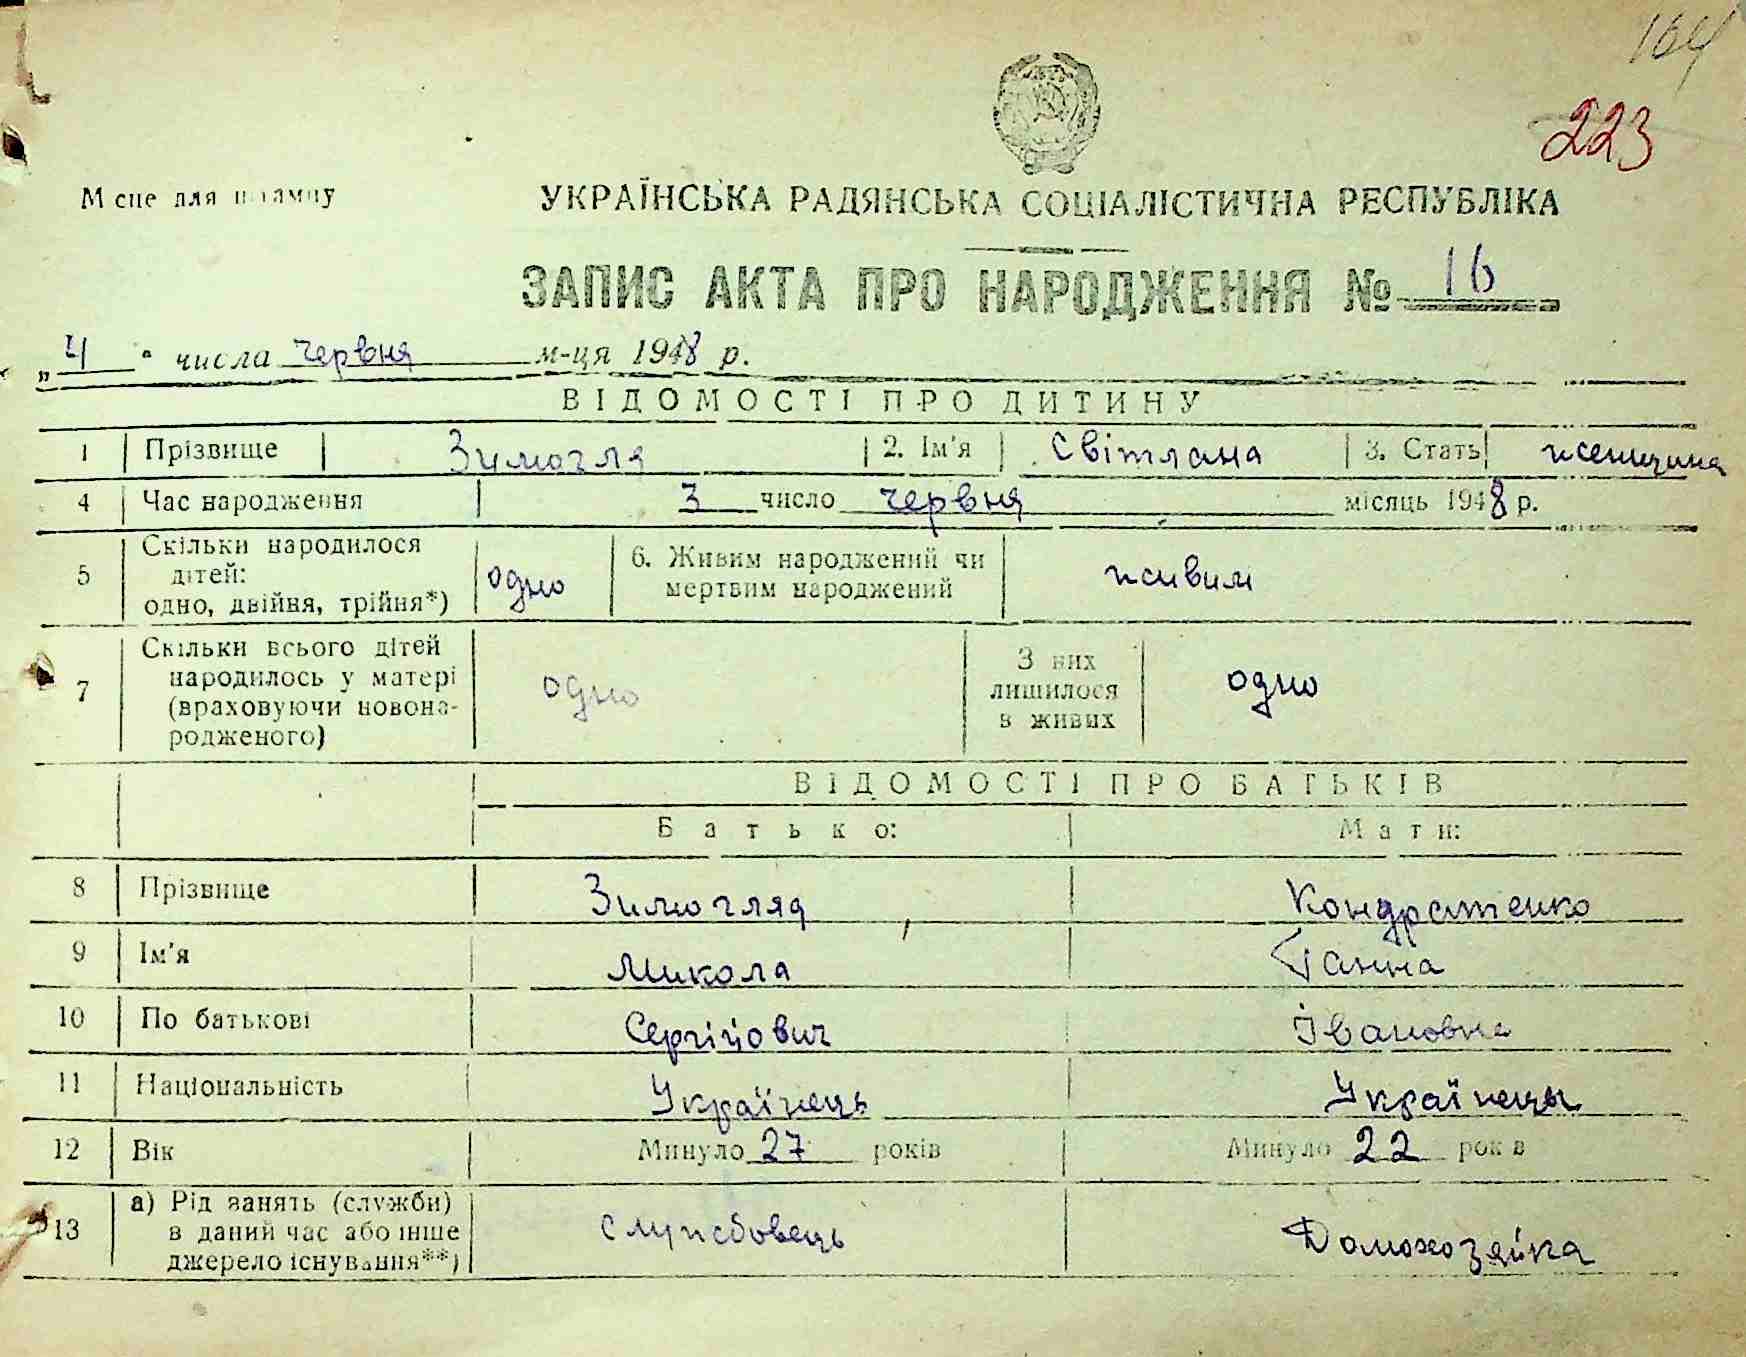 164
223
Місце для штампу
УКРАЇНСЬКА РАДЯНСЬКА СОЦІАЛІСТИЧНА РЕСПУБЛІКА
ЗАПИС АКТА ПРО НАРОДЖЕННЯ № 16
„4" числа червня м-ця 1948 р.
ВІДОМОСТІ ПРО ДИТИНУ
1 Прізвище Зимогля 2. Ім'я Світлана 3. Стать женщина
4 Час народження 3 число червня місяць 1948 р.
Скільки народилося
дітей:
5 одно, двійня, трійня*) одно 6. Живим народжений чи
мертвим народжений живим
Скільки всього дітей
народилось у матері
7 (враховуючи новона-
родженого) одно З них
лишилося
в живих одно
ВІДОМОСТІ ПРО БАТЬКІВ
Батько: Мати:
8 Прізвище Зимогляд Кондратенко
9 Ім'я Микола Ганна
10 По батькові Сергійович Івановна
11 Національність Українець Українець
12 Вік Минуло 27 років Минуло 22 років
13 а) Рід занять (служби)
в даний час або інше
джерело існування**) службовець Домохозяйка